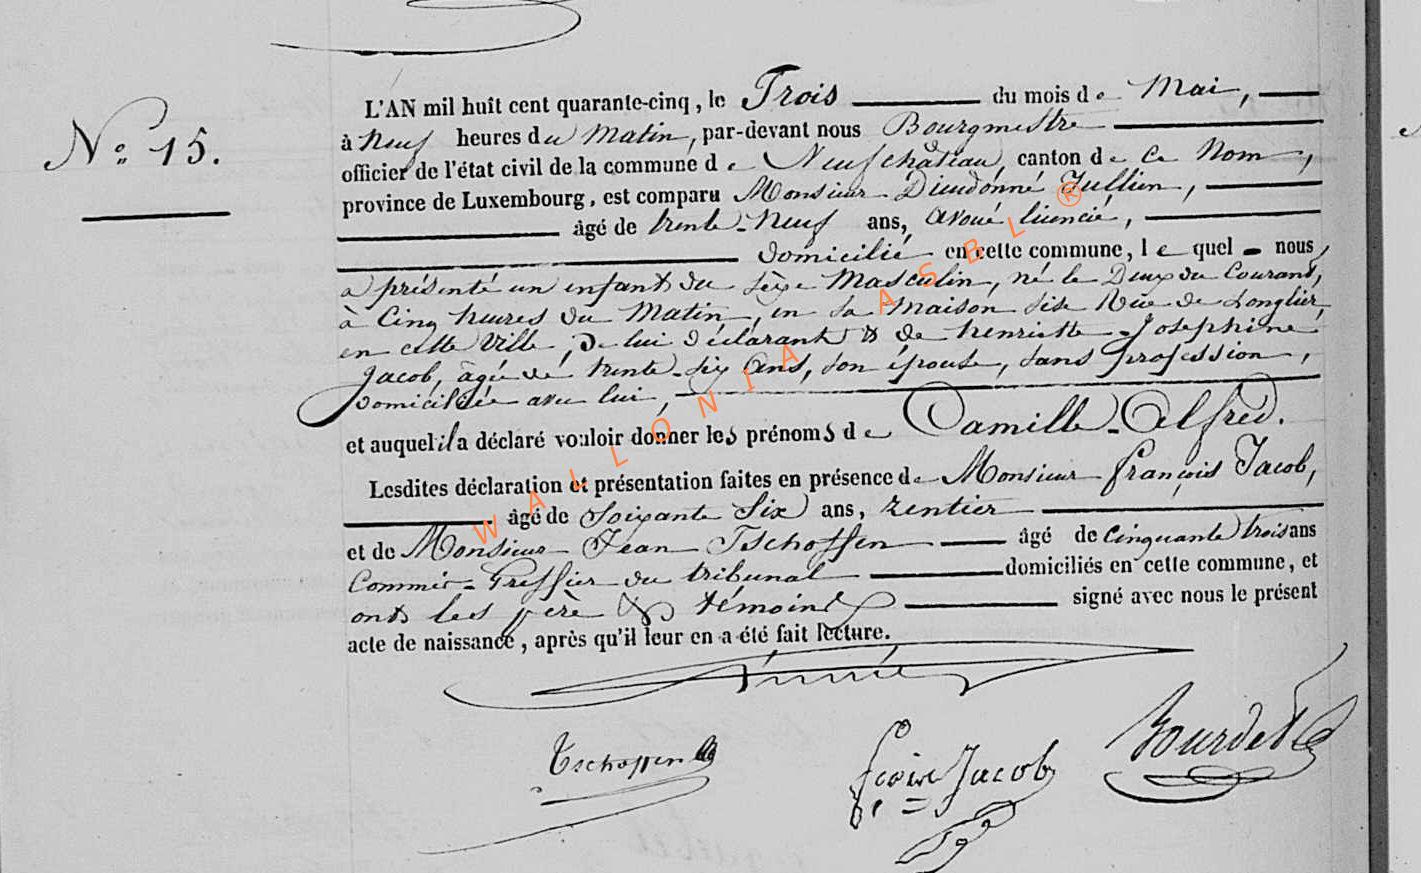 N.º 15.
L'AN mil huit cent quarante-cinq, le Trois du mois de Mai,
à Neuf heures du Matin, par-devant nous Bourgmestre
officier de l'état civil de la commune de Neufchâteau, canton de Ce Nom,
province de Luxembourg, est comparu Monsieur Dieudonné Jullien,
âgé de trente-Neuf ans, avoué licencié,
domicilié en cette commune, lequel nous
a présenté un enfant du sèxe Masculin, né le Deux du Courant,
à Cinq heures du Matin, en sa Maison sise Rüe de Longlier,
en cette Ville, de lui déclarant & de henriette Josephine
Jacob, agée de trente-six ans, son épouse, sans profession,
domiciliée avec lui,
et auquel il a déclaré vouloir donner les prénoms de Camille-Alfred.
Lesdites déclaration et présentation faites en présence de Monsieur françois Jacob,
âgé de Soixante Six ans, rentier
et de Monsieur Jean Tschoffen âgé de cinquante trois ans
Commis-Greffier du tribunal domiciliés en cette commune, et
onts les père & témoins signé avec nous le présent
acte de naissance, après qu'il leur en a été fait lecture.
Tschoffen
fçois Jacob
Bourdet
WALLONIA ASBL ®